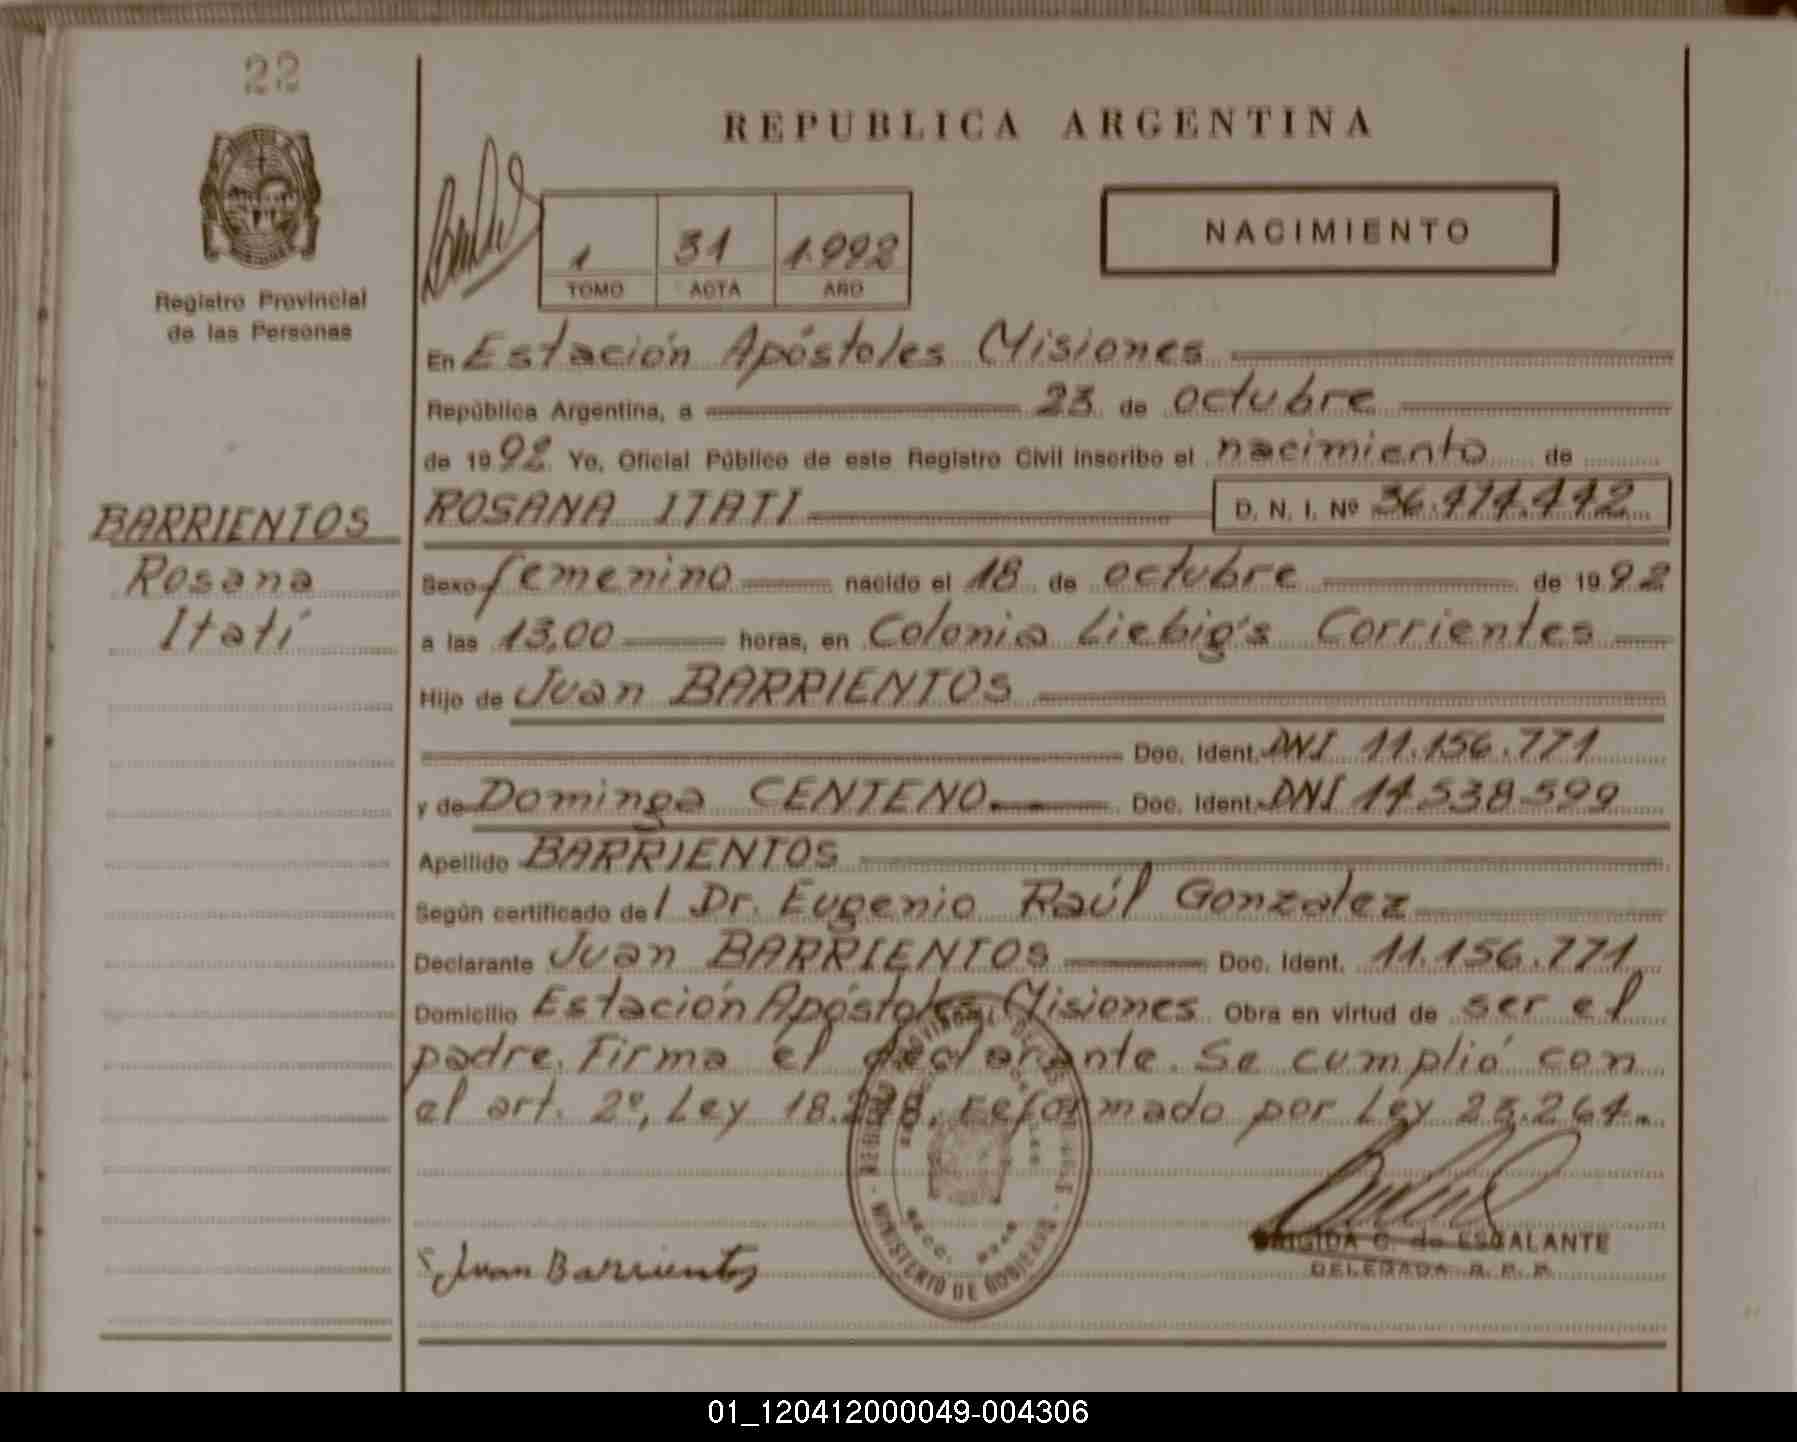 22
REPUBLICA ARGENTINA
Registro Provincial
de las Personas
1 31 1.992
TOMO ACTA AÑO
NACIMIENTO
En Estación Apóstoles Misiones
República Argentina, a 23 de octubre
de 1992 Yo, Oficial Público de este Registro Civil inscribo el nacimiento de
BARRIENTOS
Rosana
Itatí
ROSANA ITATI D. N. I. Nº 36.474.442
Sexo femenino nacido el 18 de octubre de 1992
a las 13,00 horas, en Colonia Liebig's Corrientes
Hijo de Juan BARRIENTOS
Doc. Ident. DNI 11.156.771
y de Dominga CENTENO Doc. Ident. DNI 14.538.599
Apellido BARRIENTOS
Según certificado del Dr. Eugenio Raúl Gonzalez
Declarante Juan BARRIENTOS Doc. Ident. 11.156.771
Domicilio Estación Apóstoles Misiones Obra en virtud de ser el
padre. Firma el declarante. Se cumplió con
el art. 2º, Ley 18.248, reformado por Ley 23.264.
MINISTERIO DE GOBIERNO
Juan Barrientos
BRIGIDA G. de ESCALANTE
DELEGADA R. P. P.
01_120412000049-004306